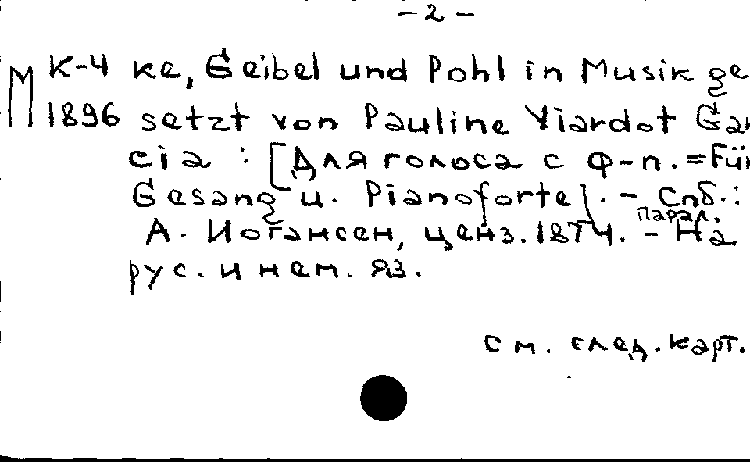 - 2 -
М К-4 ке, Geibel und Pohl in Musik ge
1896 setzt von Pauline Viardot Gar
cia : [Для голоса с ф-п. = Für
Gesang u. Pianoforte]. - Спб.:
А. Иогансен, ценз. 1874. - На
парал.
рус. и нем. яз.
См. след. карт.